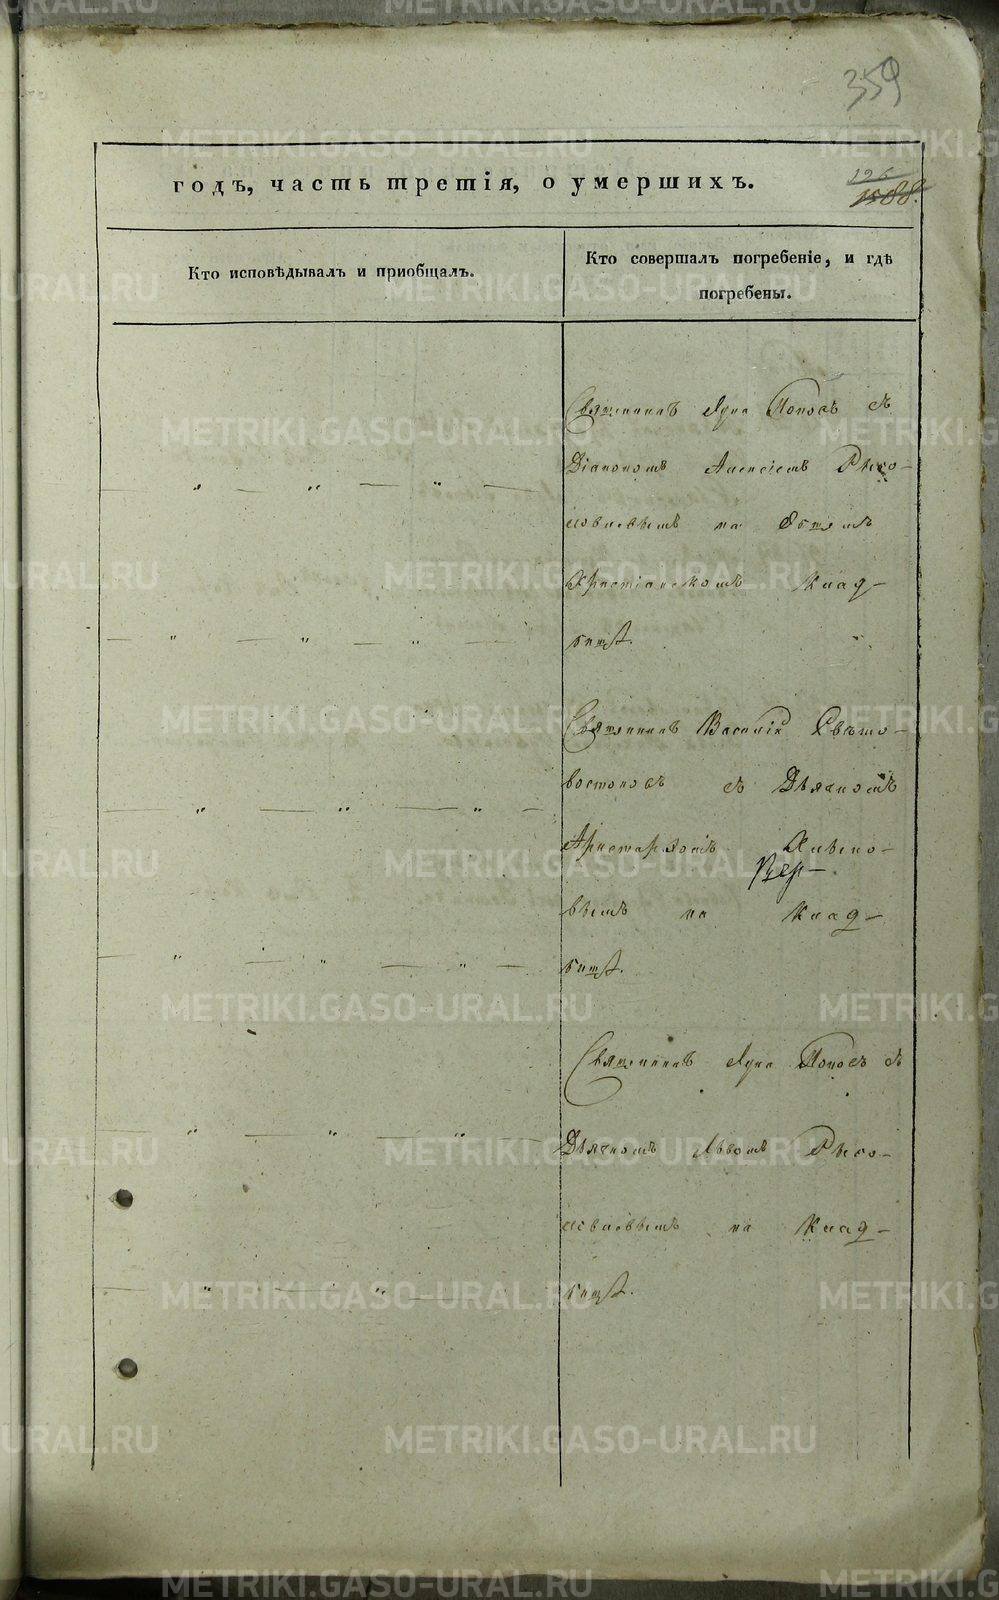 359
годъ, часть третія, о умершихъ.
126
1588.
Кто исповѣдывалъ и приобщалъ.
Кто совершалъ погребеніе, и гдѣ
погребены.
Священникъ Лука Поповъ съ
Діакономъ Алексіемъ
на Общемъ
Христіанскомъ Клад-
бищѣ.
Священникъ Василій Свѣто-
востоковъ съ Дьячкомъ
Аристархомъ
Вер-
вымъ на Клад-
бищѣ.
Священникъ Лука Поповъ съ
Дьячкомъ Львомъ
на Клад-
бищѣ.
METRIKI.GASO-URAL.RU